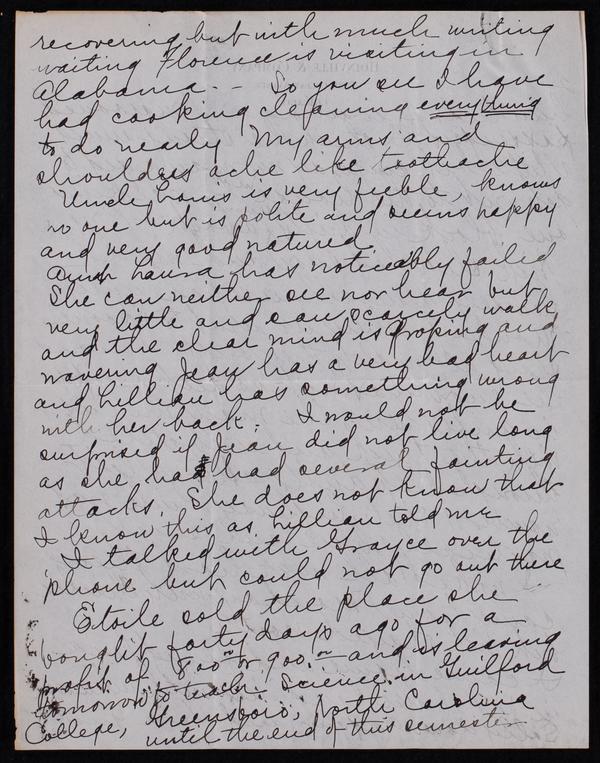 recovering but with much writing
waiting Florence is visiting in
Alabama. - So you see I have
had cooking cleaning everything
to do nearly My arms and
shoulders ache like toothache
Uncle Louis is very feeble, knows
no one but is polite and seems happy
and very good natured.
Aunt Laura has noticeably failed
She can neither see nor hear but
very little and can scarcely walk
and the clear mind is groping and
wavering Jean has a very bad heart
and Lillian has something wrong
with her back. I would not be
surprised if Jean did not live long
as she has had several fainting
attacks. She does not know that
I know this as Lillian told me
I talked with Grayce over the
'phone but could not go out there
Etoile sold the place she
bought forty days ago for a
profit of 800 or 900. and is leaving
tomorrow to teach Science in Guilford
College, Greensboro, North Carolina
until the end of this semester